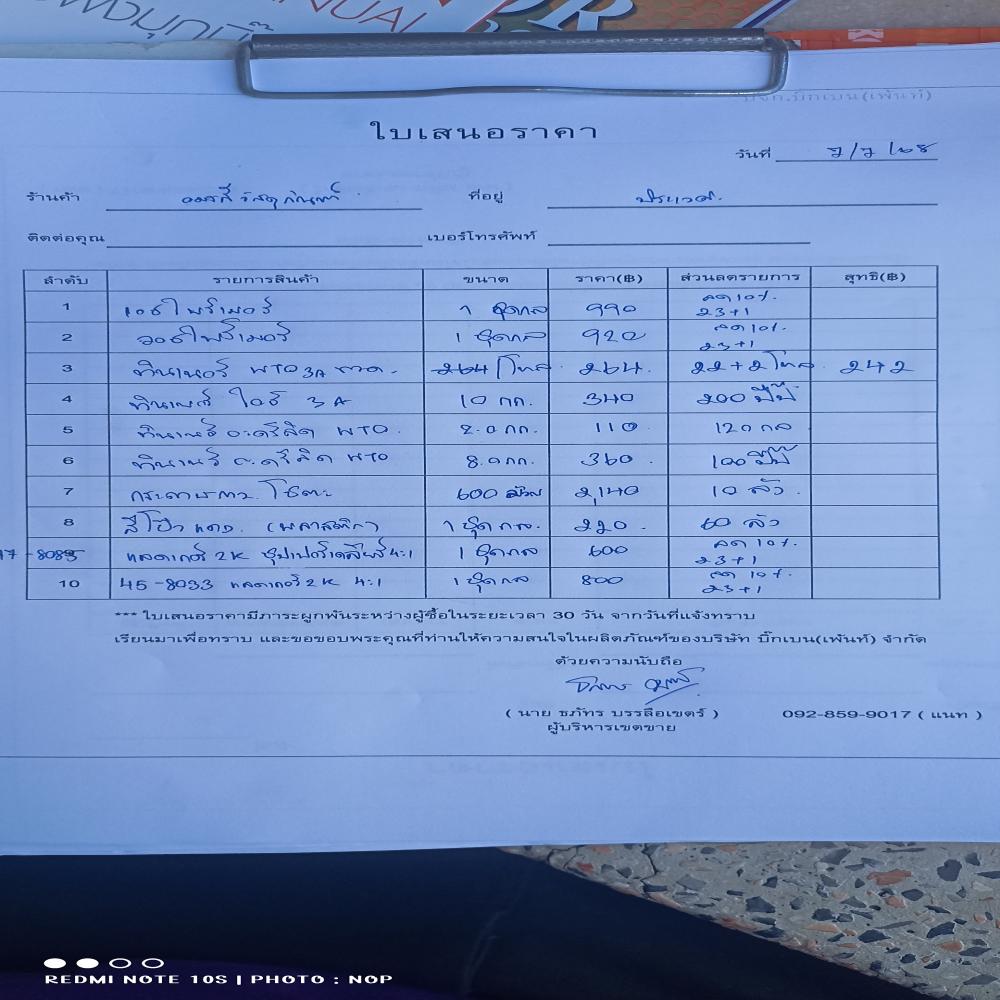 MANUAL
บจก.บิกเบน(เพ้นท์)
ใบเสนอราคา
วันที่ 7/7/68
ร้านค้า ที่อยู่ ประเวศ.
ติดต่อคุณ เบอร์โทรศัพท์
ลำดับ รายการสินค้า ขนาด ราคา(฿) ส่วนลดรายการ สุทธิ(฿)
1 ไพร์เมอร์ 1 ชุดกล 990 ลด 10% 23+1
2 ไพร์เมอร์ 1 ชุดกล 920 ลด 10% 23+1
3 ทินเนอร์ WTO 3A 264/โหล 264. 22+2 โหล. 242
4 ทินเนอร์ 3A 10 กก. 340 200 ปี๊บ
5 ทินเนอร์ อะคริลิค WTO. 110 120 กล
6 ทินเนอร์ อะคริลิค WTO 360. 100 ปี๊บ
7 กระดาษกาว 600 ม้วน 2,140 10 ลัง.
8 สีโป๊ว แดง. (พลาสติก) 1 ชุด กล. 220. 60 ลัง
17-8085 แลคเกอร์ 2K ซุปเปอร์เคลียร์ 4:1 1 ชุดกล 600 ลด 10% 23+1
10 45-8033 แลคเกอร์ 2K 4:1 1 ชุดกล 800 ลด 10% 23+1
*** ใบเสนอราคามีภาระผูกพันระหว่างผู้ซื้อในระยะเวลา 30 วัน จากวันที่แจ้งทราบ
เรียนมาเพื่อทราบ และขอขอบพระคุณที่ท่านให้ความสนใจในผลิตภัณฑ์ของบริษัท บิ๊กเบน(เพ้นท์) จำกัด
ด้วยความนับถือ
( นาย ธภัทร บรรลือเขตร์ ) 092-859-9017 ( แนท )
ผู้บริหารเขตขาย
REDMI NOTE 10S | PHOTO : NOP